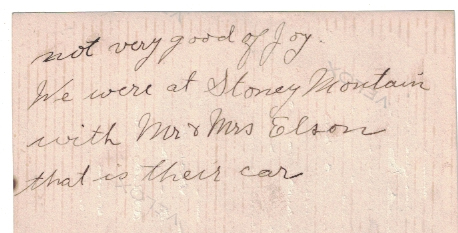 not very good of Joy.
We were at Stoney Montain
with Mr & Mrs Elson
that is their car